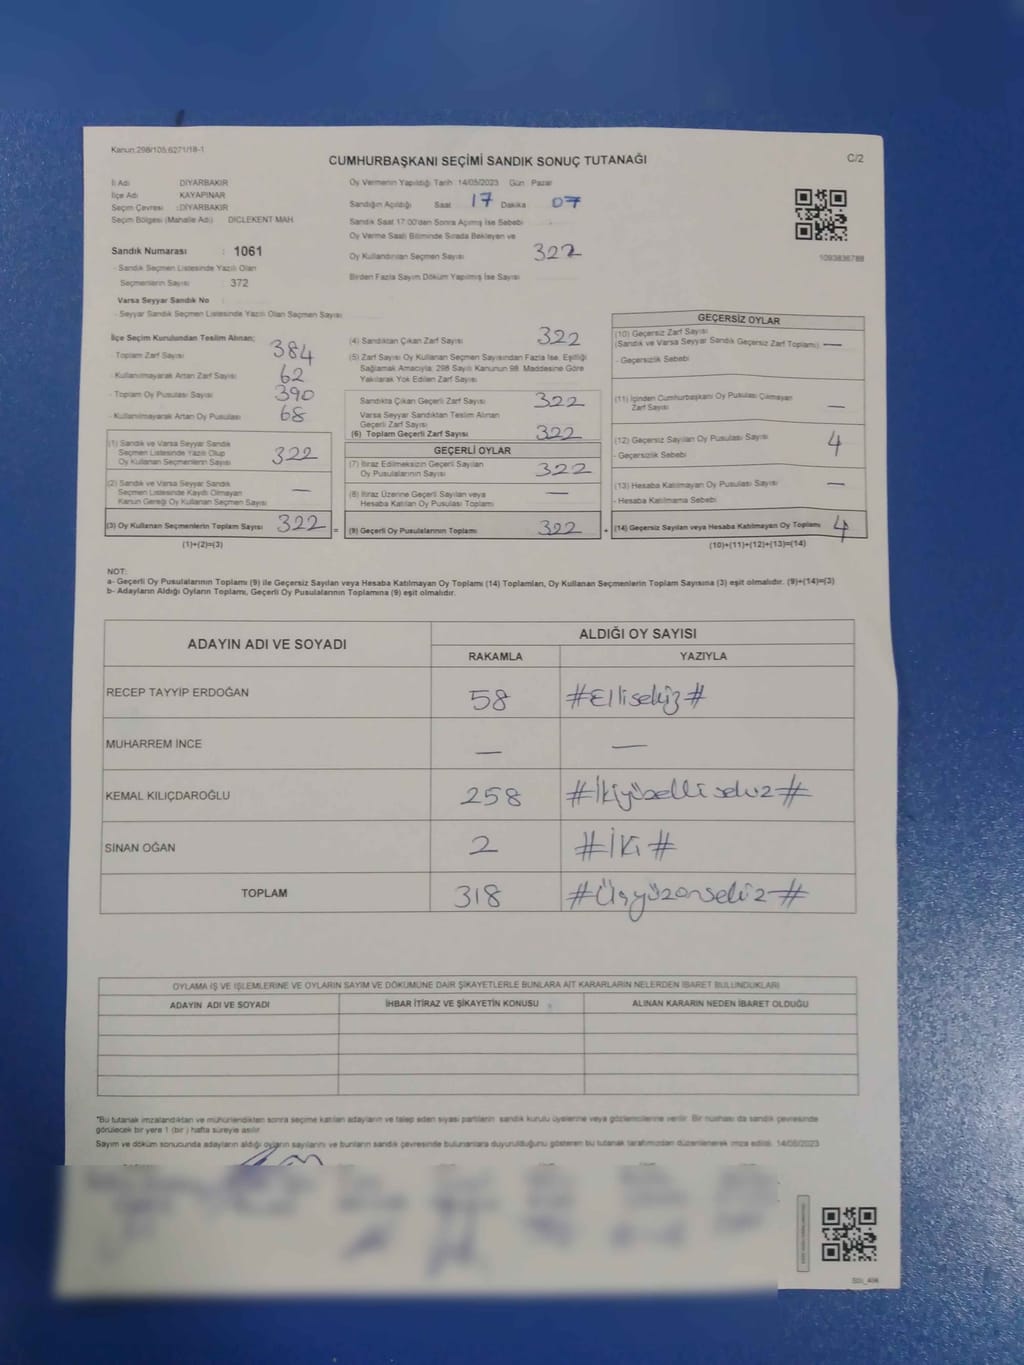 Kanun:298/105;6271/18-1
CUMHURBAŞKANI SEÇİMİ SANDIK SONUÇ TUTANAĞI
C/2
İl Adı DİYARBAKIR
İlçe Adı KAYAPINAR
Seçim Çevresi : DİYARBAKIR
Seçim Bölgesi (Mahalle Adı) DİCLEKENT MAH.
Oy Vermenin Yapıldığı Tarih :14/05/2023 Gün : Pazar
Sandığın Açıldığı Saat 17 Dakika 07
Sandık Saat 17:00'den Sonra Açılmış İse Sebebi
Oy Verme Saati Bitiminde Sırada Bekleyen ve
Oy Kullandırılan Seçmen Sayısı 322
Birden Fazla Sayım Döküm Yapılmış İse Sayısı
1093836788
Sandık Numarası : 1061
- Sandık Seçmen Listesinde Yazılı Olan
Seçmenlerin Sayısı : 372
Varsa Seyyar Sandık No :
- Seyyar Sandık Seçmen Listesinde Yazılı Olan Seçmen Sayısı :
İlçe Seçim Kurulundan Teslim Alınan;
- Toplam Zarf Sayısı 384
- Kullanılmayarak Artan Zarf Sayısı 62
- Toplam Oy Pusulası Sayısı 390
- Kullanılmayarak Artan Oy Pusulası 68
(1) Sandık ve Varsa Seyyar Sandık
Seçmen Listesinde Yazılı Olup
Oy Kullanan Seçmenlerin Sayısı 322
(2) Sandık ve Varsa Seyyar Sandık
Seçmen Listesinde Kaydı Olmayan
Kanun Gereği Oy Kullanan Seçmen Sayısı —
(3) Oy Kullanan Seçmenlerin Toplam Sayısı 322 =
(1)+(2)=(3)
(4) Sandıktan Çıkan Zarf Sayısı 322
(5) Zarf Sayısı Oy Kullanan Seçmen Sayısından Fazla İse, Eşitliği
Sağlamak Amacıyla; 298 Sayılı Kanunun 98. Maddesine Göre
Yakılarak Yok Edilen Zarf Sayısı
Sandıkta Çıkan Geçerli Zarf Sayısı 322
Varsa Seyyar Sandıktan Teslim Alınan
Geçerli Zarf Sayısı
(6) Toplam Geçerli Zarf Sayısı 322
GEÇERLİ OYLAR
(7) İtiraz Edilmeksizin Geçerli Sayılan
Oy Pusulalarının Sayısı 322
(8) İtiraz Üzerine Geçerli Sayılan veya
Hesaba Katılan Oy Pusulası Toplamı —
(9) Geçerli Oy Pusulalarının Toplamı 322 +
GEÇERSİZ OYLAR
(10) Geçersiz Zarf Sayısı
(Sandık ve Varsa Seyyar Sandık Geçersiz Zarf Toplamı) —
- Geçersizlik Sebebi
(11) İçinden Cumhurbaşkanı Oy Pusulası Çıkmayan
Zarf Sayısı —
(12) Geçersiz Sayılan Oy Pusulası Sayısı 4
- Geçersizlik Sebebi
(13) Hesaba Katılmayan Oy Pusulası Sayısı —
- Hesaba Katılmama Sebebi
(14) Geçersiz Sayılan veya Hesaba Katılmayan Oy Toplamı 4
(10)+(11)+(12)+(13)=(14)
NOT:
a- Geçerli Oy Pusulalarının Toplamı (9) ile Geçersiz Sayılan veya Hesaba Katılmayan Oy Toplamı (14) Toplamları, Oy Kullanan Seçmenlerin Toplam Sayısına (3) eşit olmalıdır. (9)+(14)=(3)
b- Adayların Aldığı Oyların Toplamı, Geçerli Oy Pusulalarının Toplamına (9) eşit olmalıdır.
ADAYIN ADI VE SOYADI
ALDIĞI OY SAYISI
RAKAMLA YAZIYLA
RECEP TAYYİP ERDOĞAN 58 #Ellisekiz#
MUHARREM İNCE — —
KEMAL KILIÇDAROĞLU 258 #İkiyüzellisekiz#
SİNAN OĞAN 2 #İki#
TOPLAM 318 #Üçyüzonsekiz#
OYLAMA İŞ VE İŞLEMLERİNE VE OYLARIN SAYIM VE DÖKÜMÜNE DAİR ŞİKAYETLERLE BUNLARA AİT KARARLARIN NELERDEN İBARET BULUNDUKLARI
ADAYIN ADI VE SOYADI İHBAR İTİRAZ VE ŞİKAYETİN KONUSU ALINAN KARARIN NEDEN İBARET OLDUĞU
*Bu tutanak imzalandıktan ve mühürlendikten sonra seçime katılan adayların ve talep eden siyasi partilerin sandık kurulu üyelerine veya gözlemcilerine verilir. Bir nüshası da sandık çevresinde
görülecek bir yere 1 (bir) hafta süreyle asılır.
Sayım ve döküm sonucunda adayların aldığı oyların sayılarını ve bunların sandık çevresinde bulunanlara duyurulduğunu gösteren bu tutanak tarafımızdan düzenlenerek imza edildi. 14/05/2023